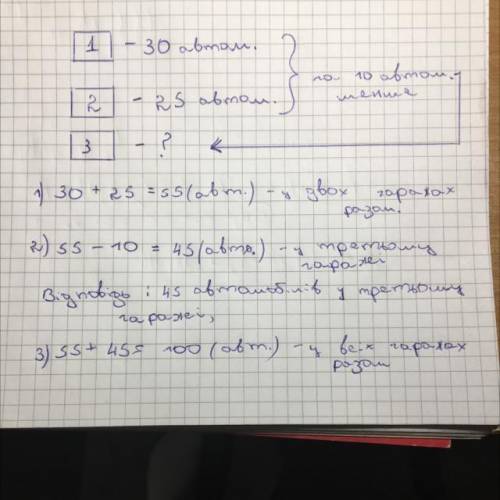 1 - 30 автом.
2 - 25 автом.
на 10 автом.
менше
3 - ?
1) 30 + 25 = 55 (авт.) - у двох гаражах
разом.
2) 55 - 10 = 45 (авто.) - у третьому
гаражі
Відповідь: 45 автомобілів у третьому
гаражі,
3) 55 + 45 = 100 (авт.) - у всіх гаражах
разом